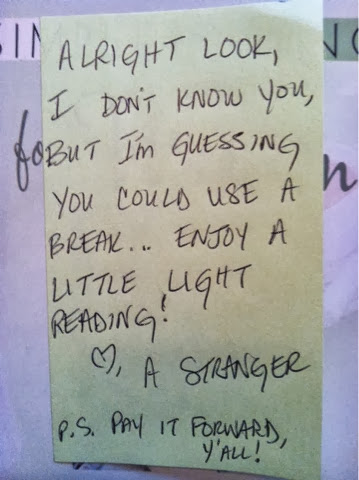 ALRIGHT LOOK,
I DON'T KNOW YOU,
BUT I'M GUESSING
YOU COULD USE A
BREAK... ENJOY A
LITTLE LIGHT
READING!
♡, A STRANGER
P.S. PAY IT FORWARD,
Y'ALL!